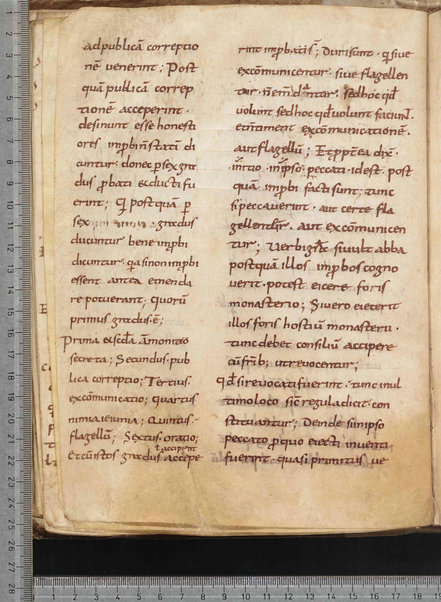 ad publicā correptio
nē venerint; Post
quā publicā correp
tionē acceperint·
desinunt esse honesti
ores improbi nstati di
cuntur· donec per sex gra
dus probati educti fu
erint; Qi postquā per
sex gradus
ducuntur bene improbi
dicuntur· quia si non improbi
essent antea emenda
re potuerant; quorū
primus gradus·ē;
Prima ei secreta āmonitio
secreta; Secundus·pub
lica correptio; Tertius·
excōmunicatio; quartus
nimia ieiunia; Quintus·
flagellū; Sextus oratio;
et accipiunt
Et cū istos gradus accepe
rint improbitatis; Duri sunt· qui sive
excōmunicentur· sive flagellen
tur· sed hoc qđ
volunt sed hoc qđ volunt faciunt·
et n timent excōmunicationē·
aut flagellū; Et propterea dix̄·
in ipso peccati· id est· post
quā improbi facti sunt· tunc
si peccaverint· aut certe fla
gellentur· aut excōmunicen
tur; Verbi gratia si vult abba
postquā illos improbos cogno
verit· potest eicere foris
monasterio; Si vero eiecerit
illos foris hostiū monasterii·
tunc debet consiliū accipere
cū frīb; ut revocentur;
Qđ si revocati fuerint· tunc in ul
timo loco sic regula dicit· con
stituantur; Deinde si in ipso
peccato pro quo eiecti inventi
fuerint· quasi primitus ve